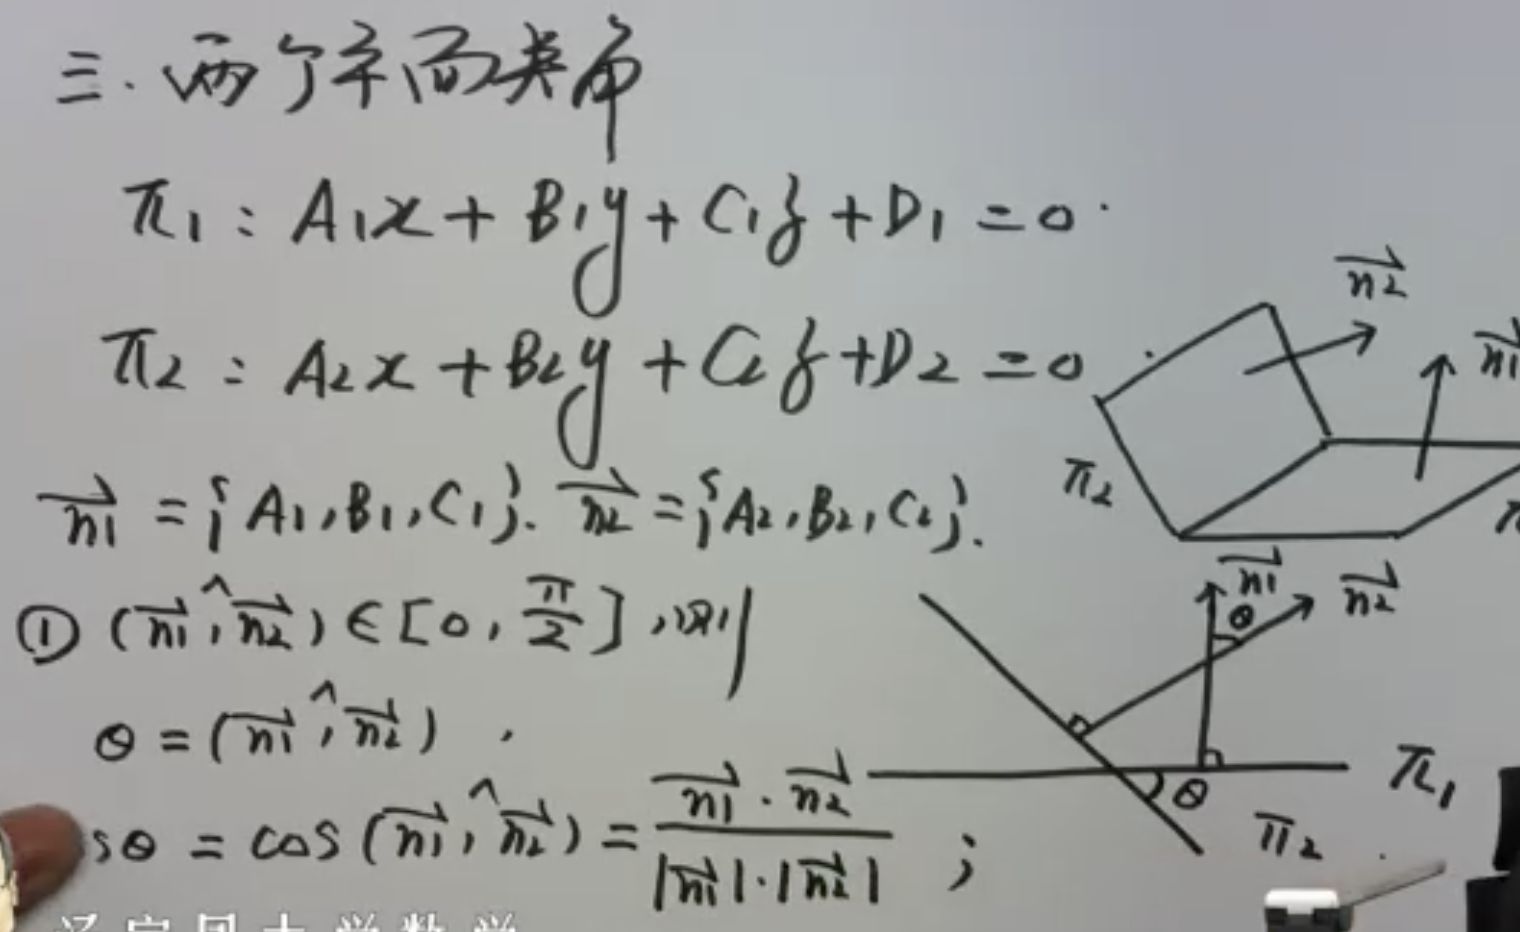 三.两个平面夹角
π₁: A₁x + B₁y + C₁z + D₁ = 0.
π₂: A₂x + B₂y + C₂z + D₂ = 0.
n₁⃗ = {A₁, B₁, C₁}. n₂⃗ = {A₂, B₂, C₂}.
① (n₁⃗ ^, n₂⃗) ∈ [0, π/2], 则
θ = (n₁⃗ ^, n₂⃗),
sθ = cos(n₁⃗ ^, n₂⃗) = (n₁⃗ · n₂⃗) / (|n₁⃗| · |n₂⃗|) ;
n₂⃗
n₁⃗
π₂
n₁⃗
n₂⃗
θ
π₁
θ
π₂